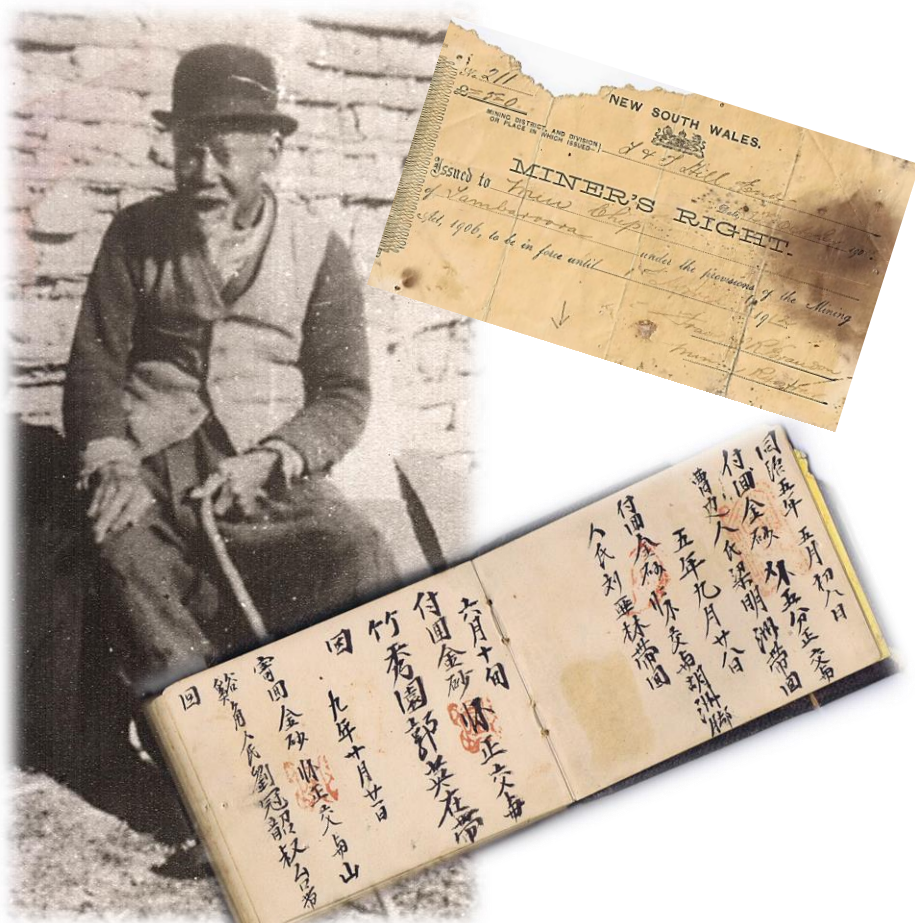 No. 211
£=5=0
NEW SOUTH WALES.
MINING DISTRICT, AND DIVISION
OR PLACE IN WHICH ISSUED
T & T Hill End
MINER'S RIGHT.
Issued to
of Tambaroora under the provisions of the Mining
Act, 1906, to be in force until 19
同治五年 五月初八日
付回金砂 五分正交与
人民梁明洲帶回
五年九月廿八日
付回金砂 交与胡洲脚
人民刘亜林帶回
六月十旬
付回金砂 正交与
竹秀園郭英在帶
回 九年十月廿二日
寄回金砂 正交与山
谿角人民劉冠韶叔台帶
回